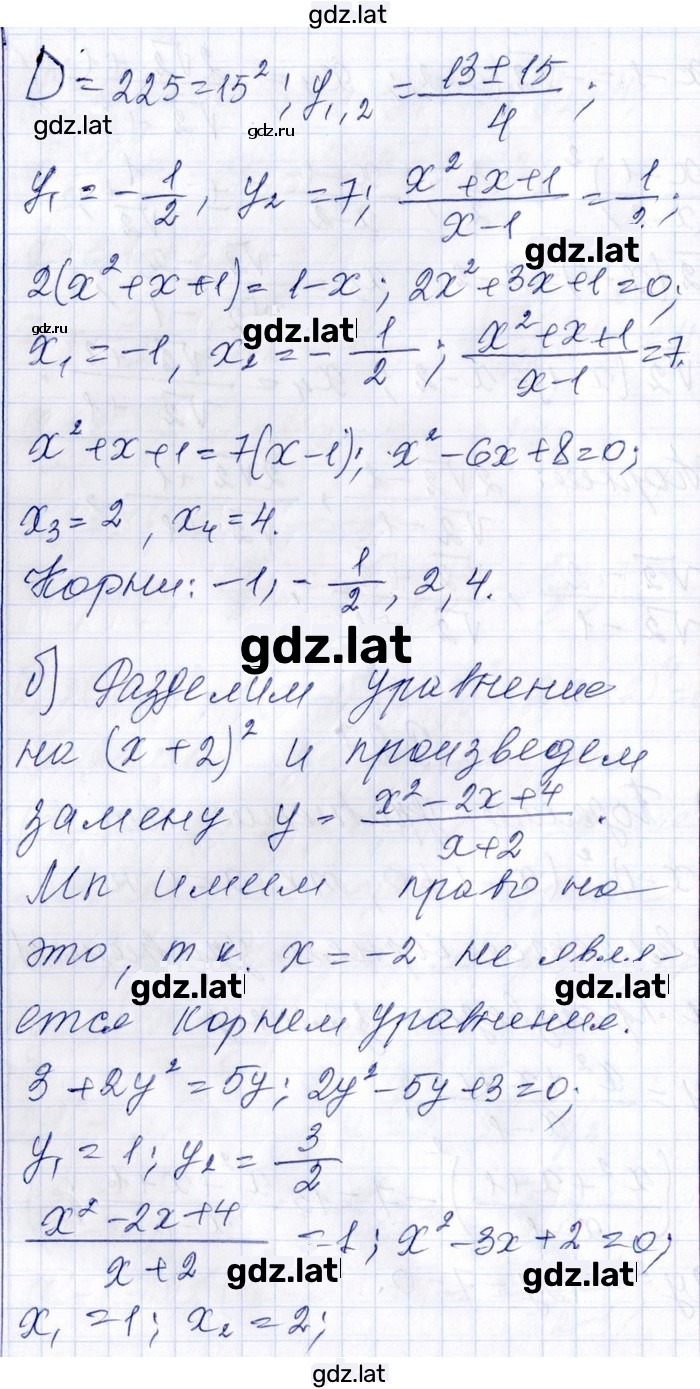 gdz.lat
D = 225 = 15²; y₁,₂ = (13 ± 15)/4;
gdz.lat gdz.ru gdz.lat
y₁ = -1/2, y₂ = 7; (x² + x + 1)/(x - 1) = 1/2;
gdz.lat
2(x² + x + 1) = 1 - x; 2x² + 3x + 1 = 0;
gdz.ru gdz.lat
x₁ = -1, x₂ = -1/2; (x² + x + 1)/(x - 1) = 7.
x² + x + 1 = 7(x - 1); x² - 6x + 8 = 0;
x₃ = 2, x₄ = 4.
Корни: -1, -1/2, 2, 4.
gdz.lat
б) Разделим уравнение
на (x + 2)² и произведем
замену y = (x² - 2x + 4)/(x + 2).
Мы имеем право на
это, т.к. x = -2 не явля-
gdz.lat gdz.lat
ется корнем уравнения.
3 + 2y² = 5y; 2y² - 5y + 3 = 0;
y₁ = 1; y₂ = 3/2
(x² - 2x + 4)/(x + 2) = 1; x² - 3x + 2 = 0;
gdz.lat gdz.lat
x₁ = 1; x₂ = 2;
gdz.lat